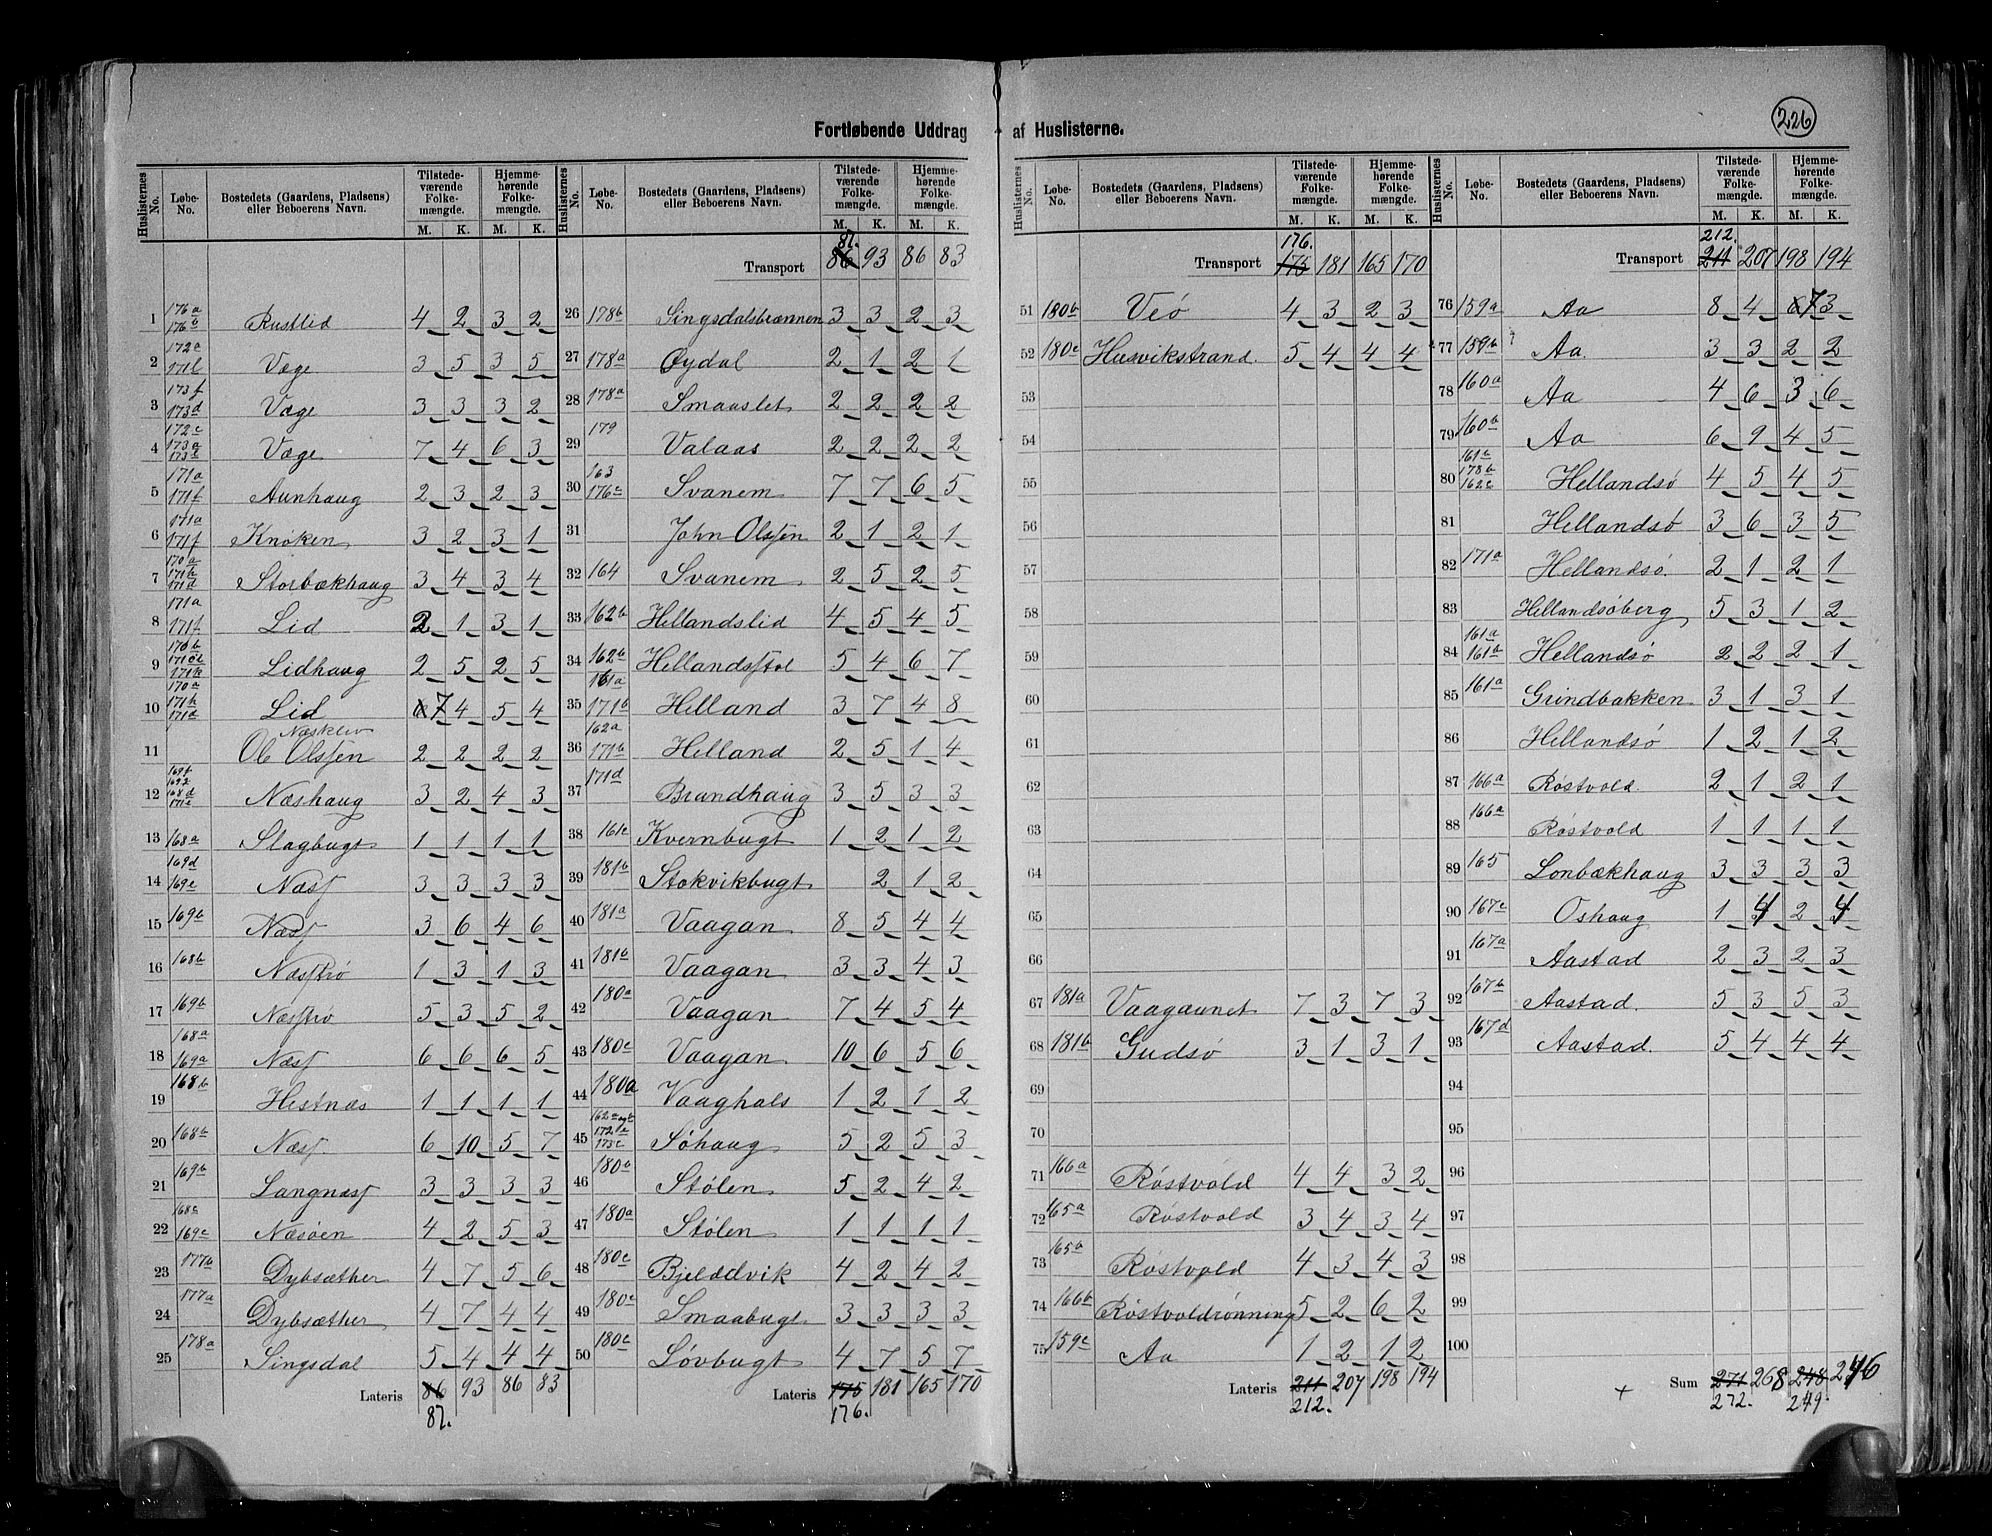 226
Fortløbende Uddrag af Huslisterne.
Huslisternes No. Løbe-No. Bostedets (Gaardens, Pladsens) eller Beboerens Navn. Tilstedeværende Folkemængde. M. K. Hjemmehørende Folkemængde. M. K.
1 176a 176b Rustlid 4 2 3 2
2 172a 171l Væge 3 5 3 5
3 173f 173d Væge 3 3 3 2
4 172c 173a 173e Væge 7 4 6 3
5 171a 171f Aunhaug 2 3 2 3
6 171a 171f Knøken 3 2 3 1
7 170a 171h 171d Storbækhaug 3 4 3 4
8 171a 171f Lid 2 1 3 1
9 170b 171k Lidhaug 2 5 2 5
10 170a 171h 171d Lid 7 4 5 4
11 Næsklev Ole Olsen 2 2 2 2
12 169f 168d 171e Næshaug 3 2 4 3
13 168a Slagbugt 1 1 1 1
14 169d 169e Næss 3 3 3 3
15 169b Næss 3 6 4 6
16 168b Næsstrø 1 3 1 3
17 169b Næsstrø 5 3 5 2
18 168a 169a Næss 6 6 6 5
19 168b Hestnæs 1 1 1 1
20 168b Næss 6 10 5 7
21 169b Langnæss 3 3 3 3
22 168c 169c Næsøen 4 2 5 3
23 177b Dybsæther 4 7 5 6
24 177a Dybsæther 4 7 4 4
25 178a Singsdal 5 4 4 4
Lateris 86 93 86 83
87.
Transport 86 93 86 83
87.
26 178b Singsdalsbrænnen 3 3 2 3
27 178a Øydal 2 1 2 1
28 178a Smaaslet 2 2 2 2
29 179 Valaas 2 2 2 2
30 163 176c Svanem 7 7 6 5
31 John Olssen 2 1 2 1
32 164 Svanem 2 5 2 5
33 162b Hellandslid 4 5 4 5
34 162b Hellandsstol 5 4 6 7
35 161a 171b Helland 3 7 4 8
36 162a 171b Helland 2 5 1 4
37 171d Brandhaug 3 5 3 3
38 161c Kvernbugt 1 2 1 2
39 181b Stokvikbugt 2 1 2
40 181a Vaagan 8 5 4 4
41 181b Vaagan 3 3 4 3
42 180a Vaagan 7 4 5 4
43 180c Vaagan 10 6 5 6
44 180a Vaaghals 1 2 1 2
45 162a 172e 173c Søhaug 5 2 5 3
46 180b Stølen 5 2 4 2
47 180a Stølen 1 1 1 1
48 180c Bjelddvik 4 2 4 2
49 180c Smaabugt 3 3 3 3
50 180c Løvbugt 4 7 5 7
Lateris 175 181 165 170
176.
Transport 175 181 165 170
176.
51 180b Veø 4 3 2 3
52 180c Husvikstrand 5 4 4 4
53
54
55
56
57
58
59
60
61
62
63
64
65
66
67 181a Vaagaunet 7 3 7 3
68 181b Gudsø 3 1 3 1
69
70
71 166a Røstvold 4 4 3 2
72 165a Røstvold 3 4 3 4
73 165b Røstvold 4 3 4 3
74 166b Røstvoldrønning 5 2 6 2
75 159c Aa 1 2 1 2
Lateris 211 207 198 194
212.
Transport 211 207 198 194
212.
76 159a Aa 8 4 7 3
77 159b Aa 3 3 2 2
78 160a Aa 4 6 3 6
79 160b Aa 6 9 4 5
80 161c 178b 162c Hellandsø 4 5 4 5
81 Hellandsø 3 6 3 5
82 171a Hellandsø 2 1 2 1
83 Hellandsøberg 5 3 1 2
84 161a 161b Hellandsø 2 2 2 1
85 161a Grindbakken 3 1 3 1
86 Hellandsø 1 2 1 2
87 166a Røstvold. 2 1 2 1
88 166a Røstvold 1 1 1 1
89 165 Lonbækhaug 3 3 3 3
90 167c Oshaug 1 4 2 4
91 167a Aastad 2 3 2 3
92 167b Aastad. 5 3 5 3
93 167d Aastad. 5 4 4 4
94
95
96
97
98
99
100
+ Sum 271 268 248 246
272. 249.